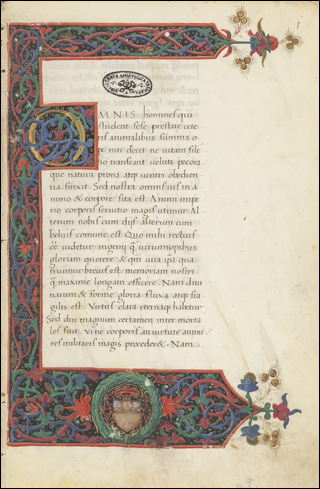 OMNIS homines qui
student sese prestare cete
ris animalibus summa o
pe niti decet ne uitam silē
tio transeant ueluti pecora
que natura prona atq; uentri obedien
tia finxit. Sed nostra omnis uis in a
nimo & corpore sita est. Animi impe
rio corporis seruitio magis utimur. Al
terum nobis cum diis alterum cum
beluis comune est. Quo mihi rectius
eē uidetur ingenii q̃ uirium opibus
gloriam querere & qm̄ uita ipa qua
fruimur breuis est memoriam nostri
q̃ maxime longam efficere. Nam diui
tiarum & forme gloria fluxa atq; fra
gilis est. Virtus clara eternaq; habetur
Sed diu magnum certamen inter morta
les fuit. Vi ne corporis an uirtute animi
res militaris magis procederet. Nam